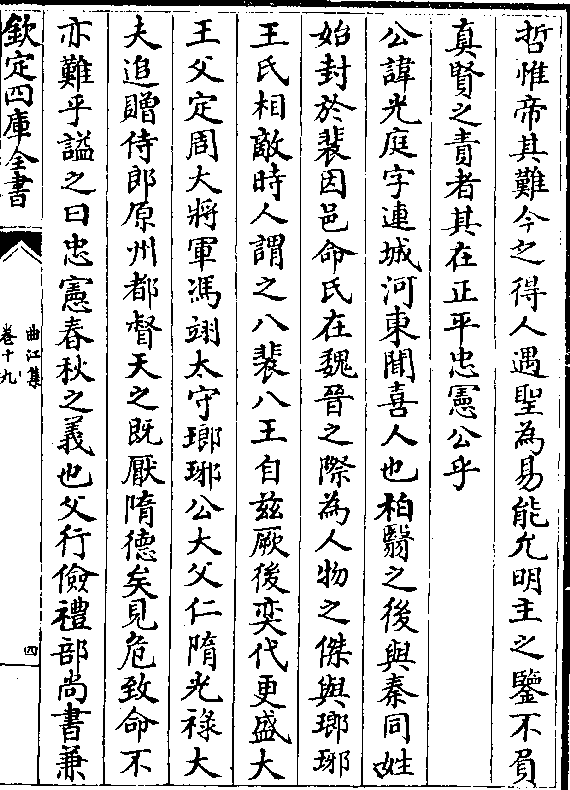 哲惟帝其難今之得人遇聖為易能允明主之鑒不負
真賢之責者其在正平忠憲公乎
公諱光庭字連城河東聞喜人也柏翳之後與秦同姓
始封於裴因邑命氏在魏晉之際為人物之傑與瑯琊
王氏相敵時人謂之八裴八王自茲厥後奕代更盛大
王父定周大將軍馮翊太守瑯琊公大父仁隋光祿大
夫追贈侍郎原州都督天之既厭隋德矣見危致命不
亦難乎謚之曰忠憲春秋之義也父行儉禮部尚書兼
欽定四庫全書
曲江集
卷十九
四